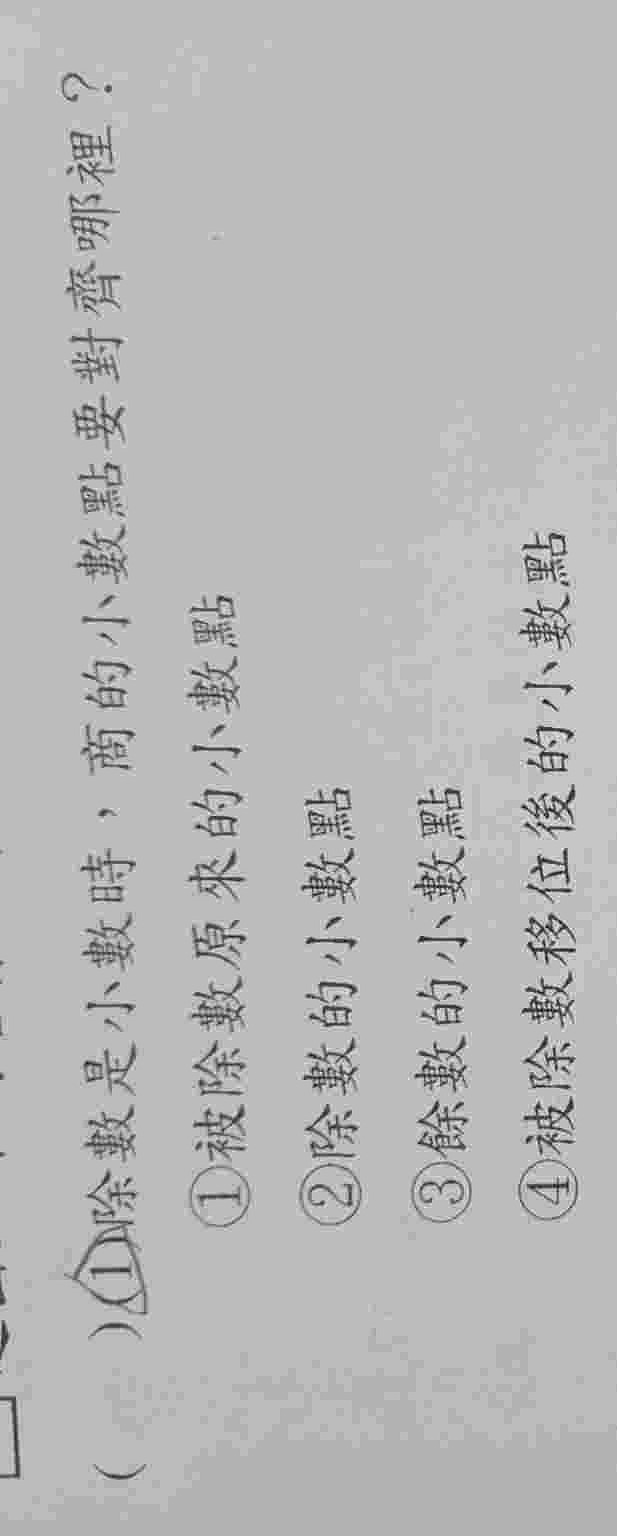 (　　)(1)除數是小數時，商的小數點要對齊哪裡？
①被除數原來的小數點
②除數的小數點
③餘數的小數點
④被除數移位後的小數點